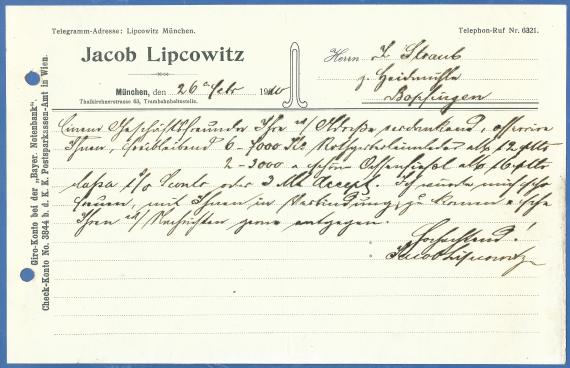 Telegramm-Adresse: Lipcowitz München.
Telephon-Ruf Nr. 6321.
Jacob Lipcowitz
Herrn J. Straub
z. Heidmühle
Bopfingen
München, den 26 Febr 1910
Thalkirchnerstrasse 63, Trambahnhaltestelle.
Giro-Konto bei der „Bayer. Notenbank“.
Check-Konto No. 3844 b. d. K. K. Postsparkassen-Amt in Wien.
Einem Geschäftsfreunde Ihre Adresse verdankend, offerire
Ihnen, freibleibend 6-7000 Kilo
2-3000
Cassa Sconto oder 3 Mt Accept. Ich würde mich sehr
freuen, mit Ihnen in Verbindung zu kommen & sehe
Ihren Nachrichten gerne entgegen.
Hochachtend!
Jacob Lipcowitz